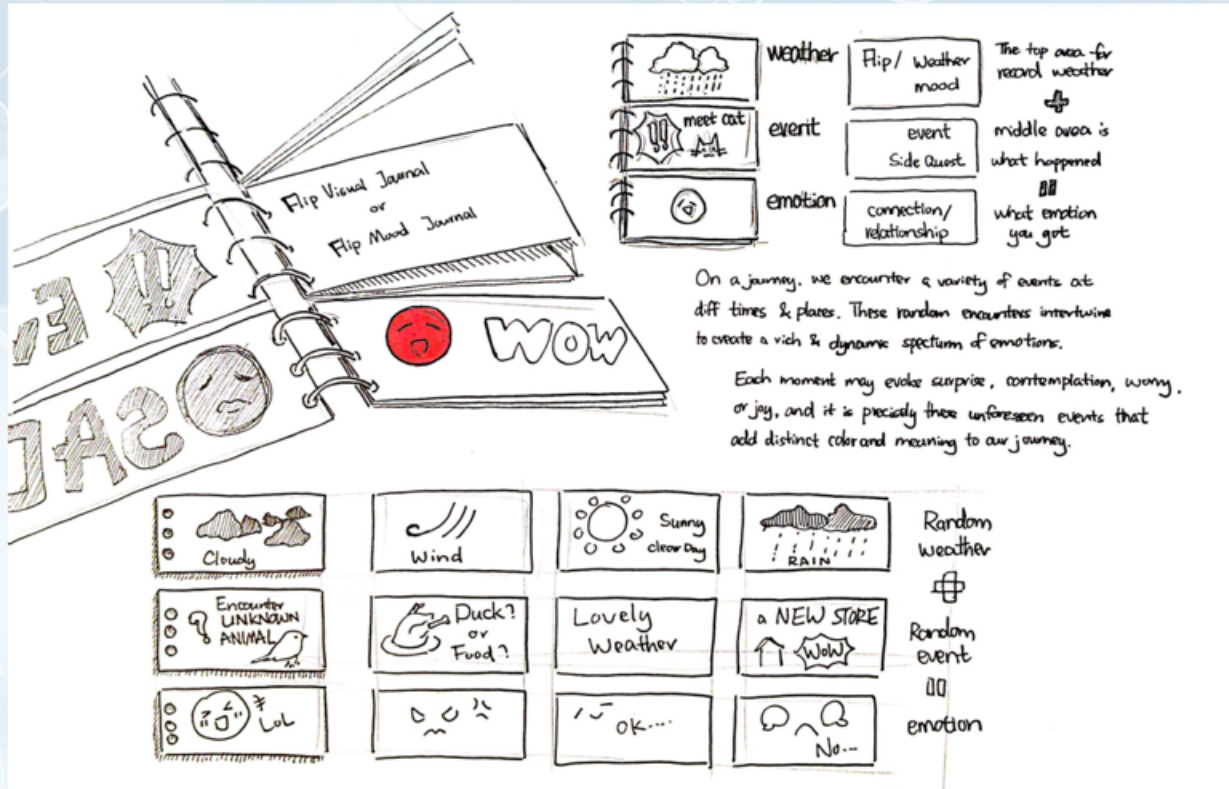 Flip Visual Journal
or
Flip Mood Journal
!!
SAD
WOW
weather
meet cat
!!
event
emotion
Flip/ Weather
mood
event
Side Quest
connection/
relationship
The top area for
record weather
+
middle area is
what happened
=
what emotion
you got
On a journey, we encounter a variety of events at
diff times & places. These random encounters intertwine
to create a rich & dynamic spectrum of emotions.
Each moment may evoke surprise, contemplation, worry,
or joy, and it is precisely these unforeseen events that
add distinct color and meaning to our journey.
Cloudy
Wind
Sunny
clear Day
RAIN
Random
weather
+
Encounter
? UNKNOWN
ANIMAL
Duck?
or
Food?
Lovely
Weather
a NEW STORE
WOW
Random
event
=
LOL
OK....
No...
emotion